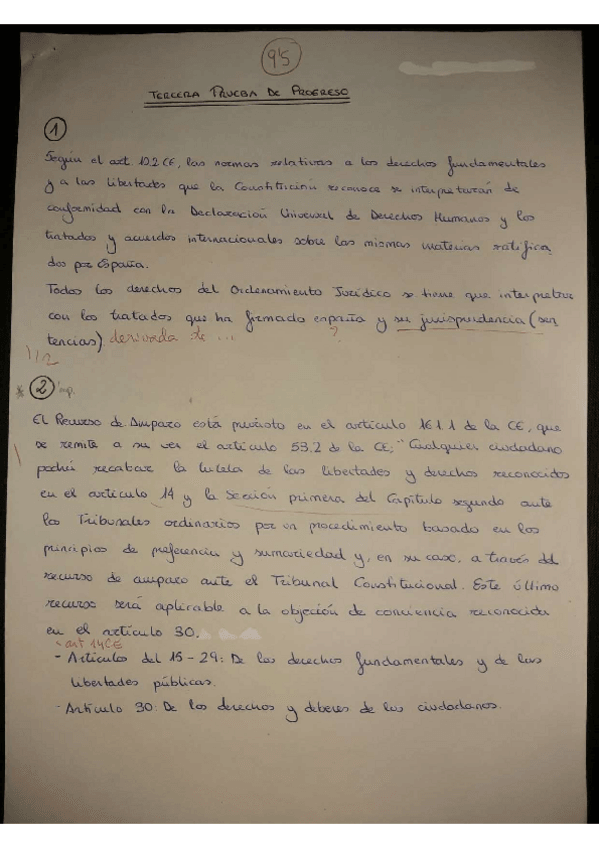 9'5
TERCERA PRUEBA DE PROGRESO
1
Según el art 10.2 CE, las normas relativas a los derechos fundamentales
y a las libertades que la Constitución reconoce se interpretarán de
conformidad con la Declaración Universal de Derechos Humanos y los
tratados y acuerdos internacionales sobre las mismas materias ratifica
dos por España.
Todos los derechos del Ordenamiento Jurídico se tiene que interpretar
con los tratados que ha firmado españa y su jurisprudencia (sen
tencias) derivada de ...
?
1/2
* 2 imp.
El Recurso de Amparo está previsto en el artículo 161.1 de la CE, que
se remite a su vez el artículo 53.2 de la CE; "Cualquier ciudadano
podrá recabar la tutela de las libertades y derechos reconocidos
en el artículo 14 y la sección primera del Capítulo segundo ante
los Tribunales ordinarios por un procedimiento basado en los
principios de preferencia y sumariedad y, en su caso, a través del
recurso de amparo ante el Tribunal Constitucional. Este último
recurso será aplicable a la objeción de conciencia reconocida
en el artículo 30.
- art 14 CE
- Artículos del 15-29: De los derechos fundamentales y de las
libertades públicas.
- Artículo 30: De los derechos y deberes de los ciudadanos.